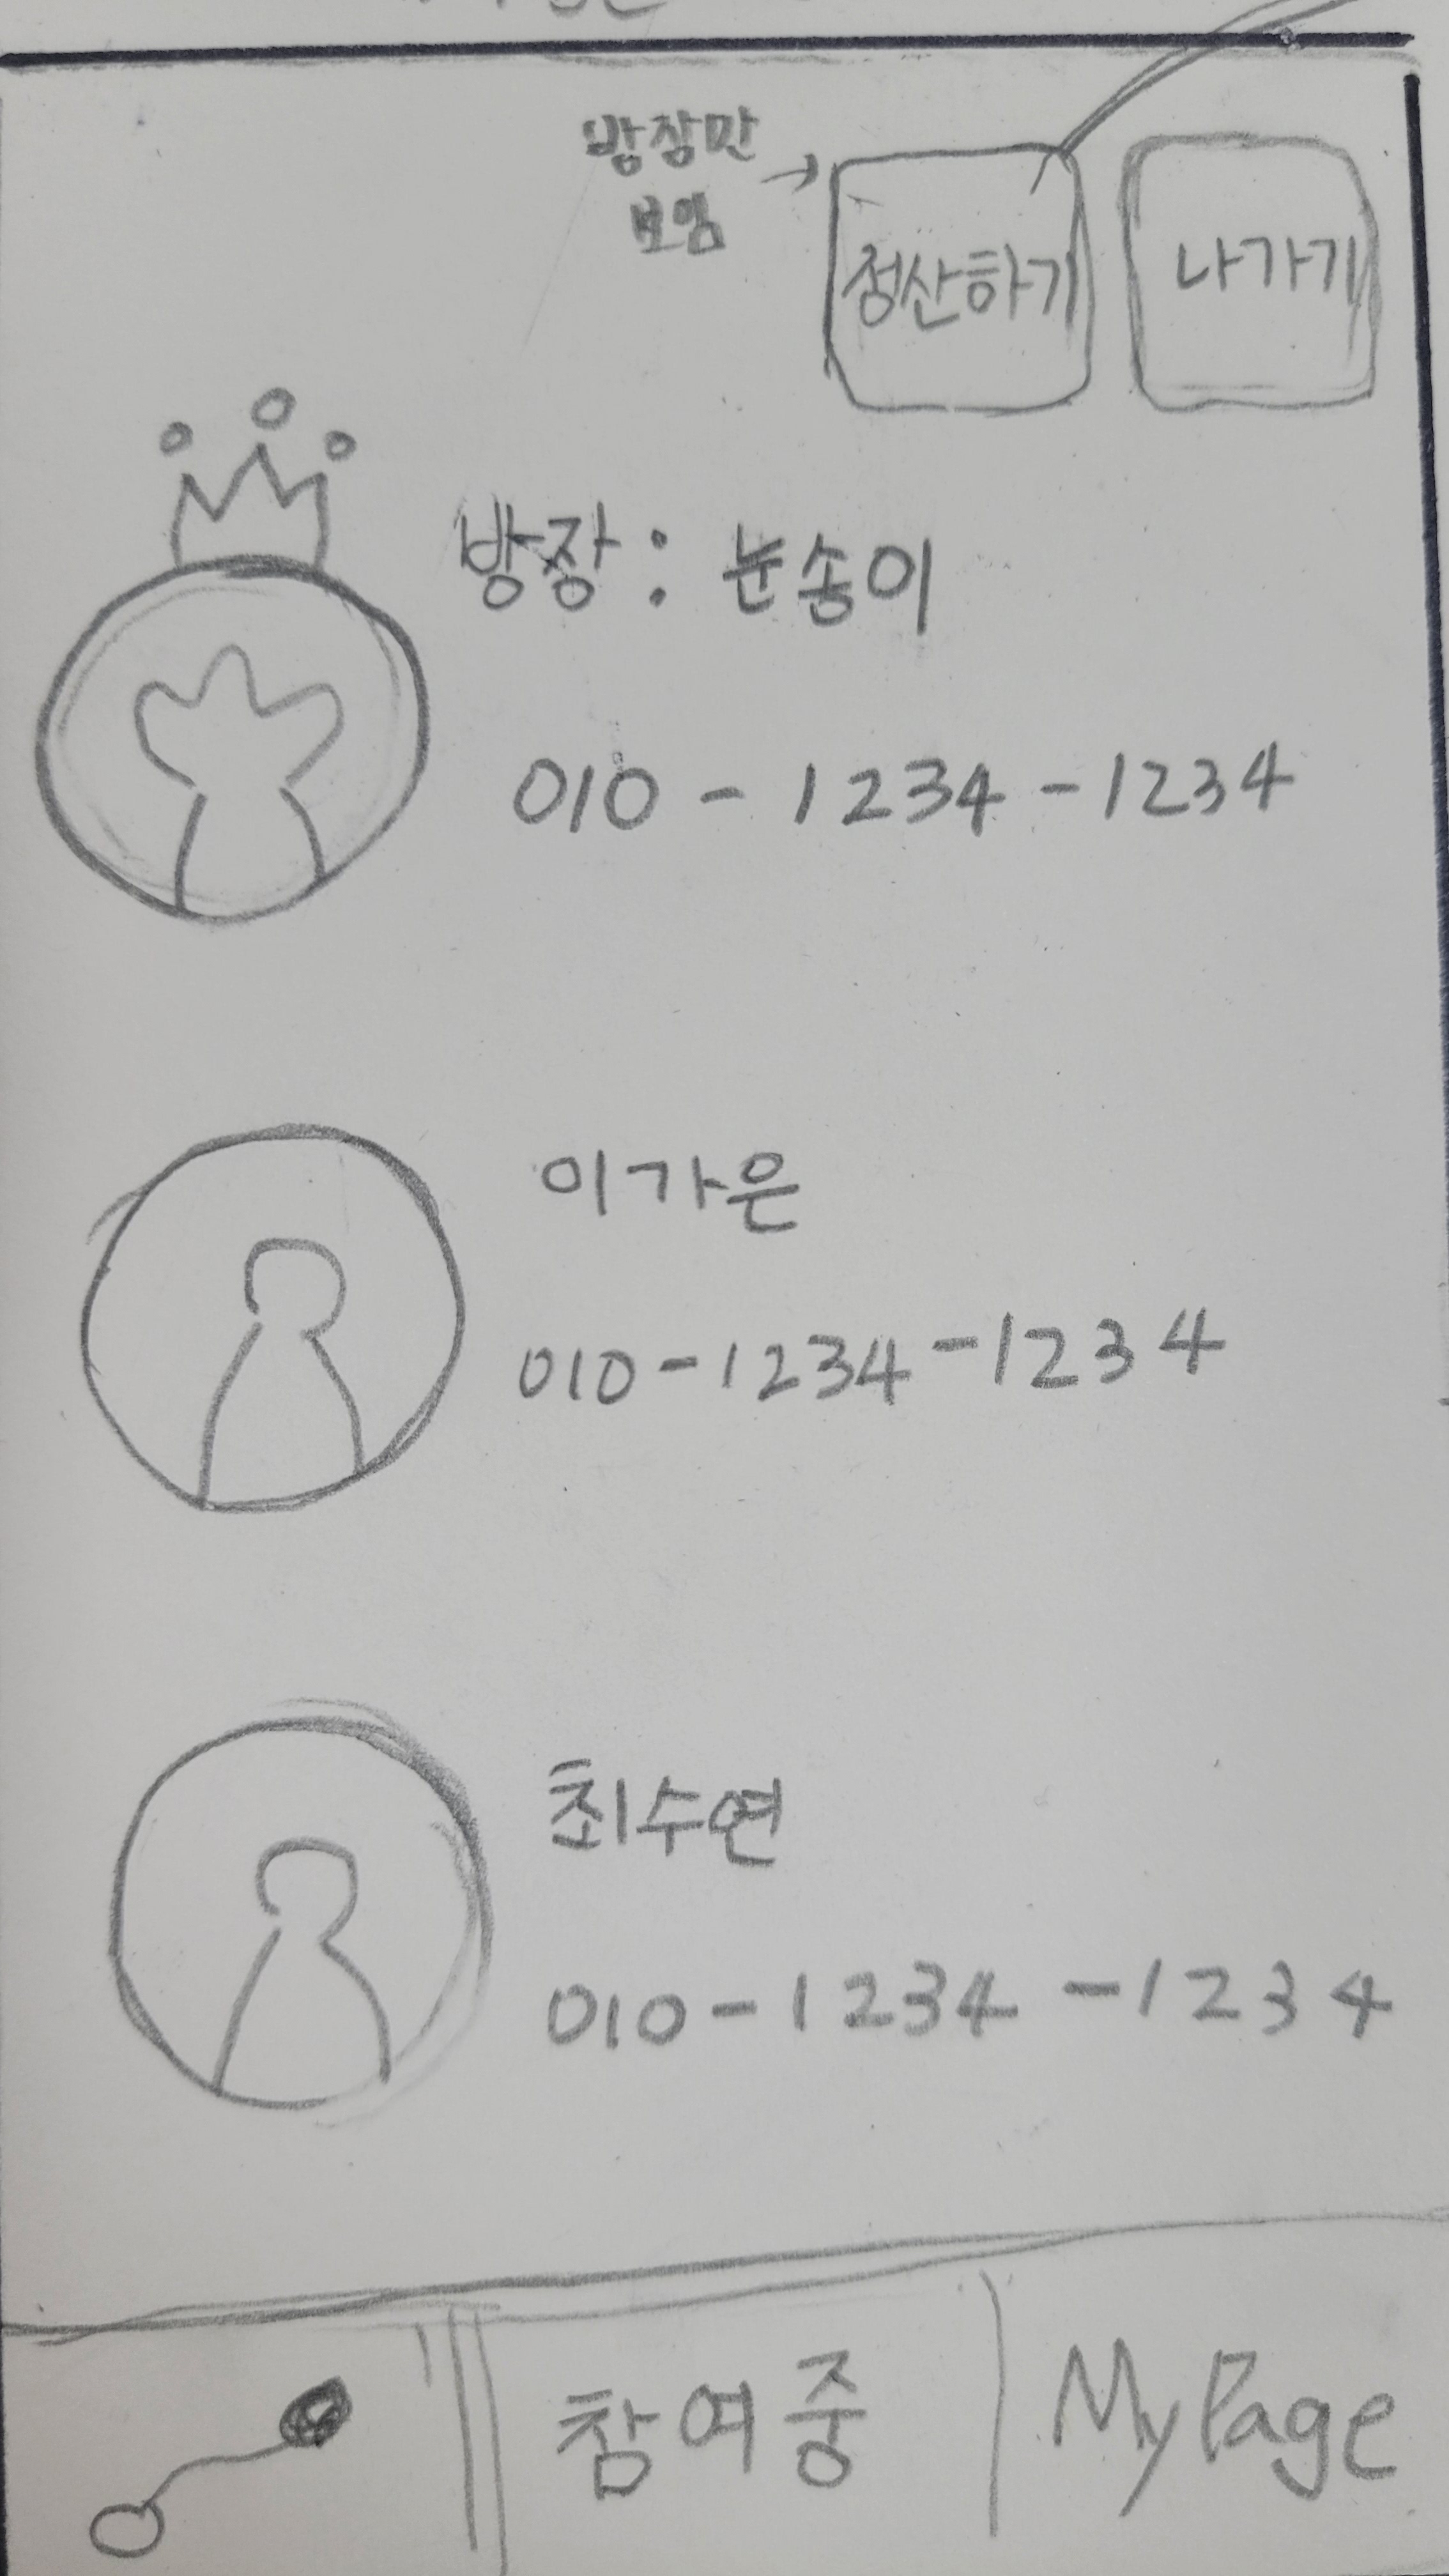 방장만
보임
정산하기 나가기
방장 : 눈송이
010 - 1234 - 1234
이가은
010-1234-1234
최수연
010-1234-1234
참여중 MyPage